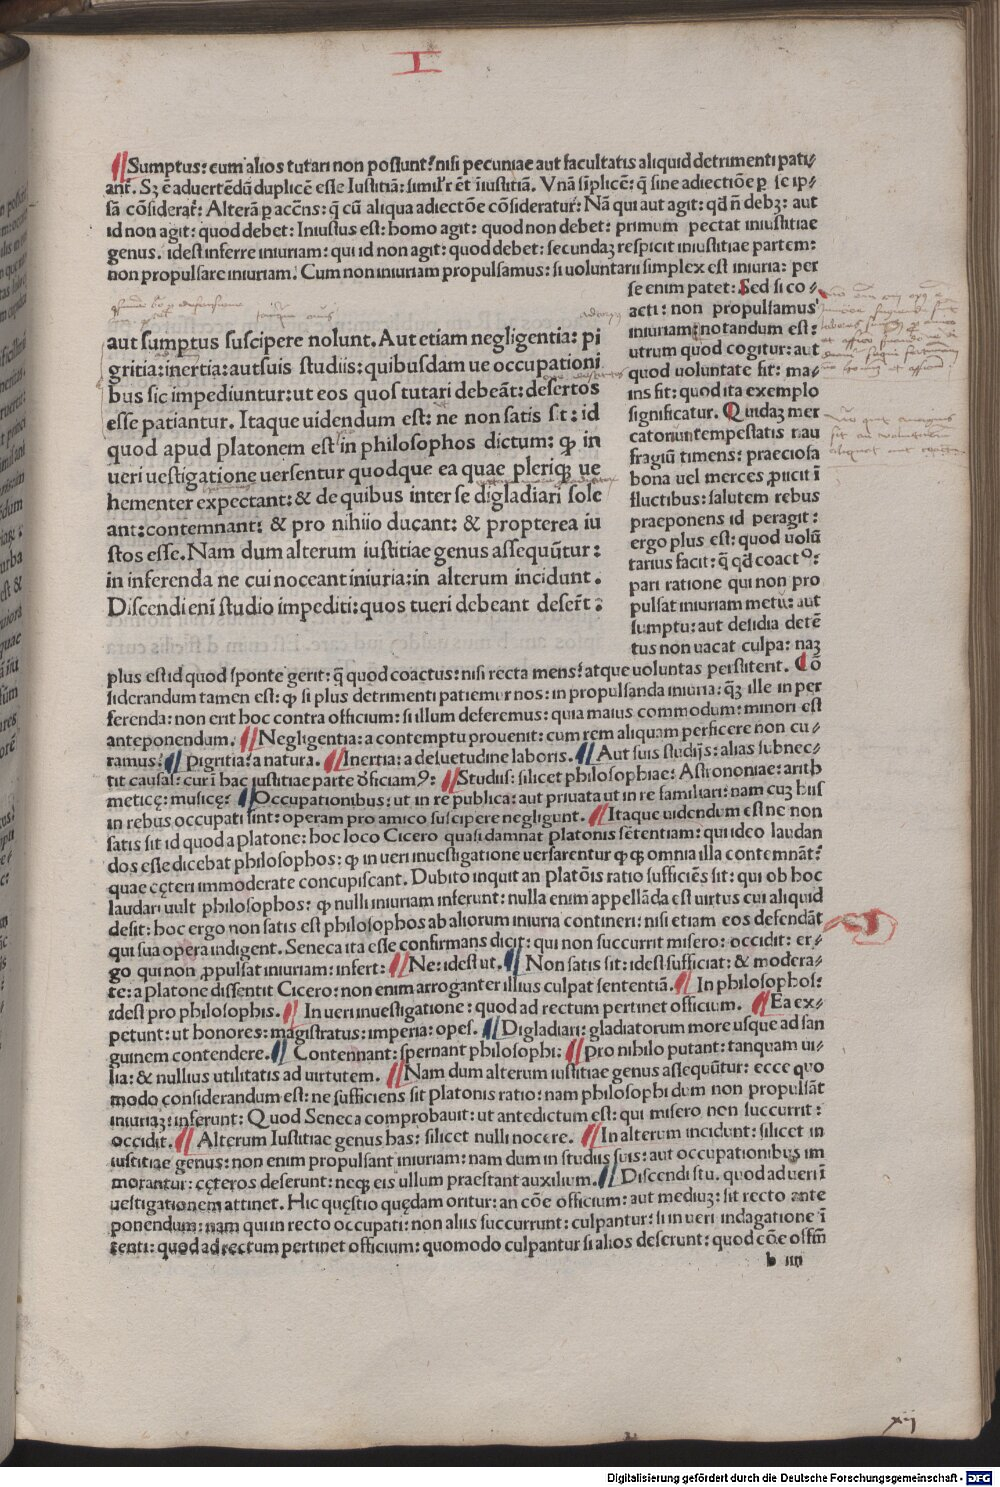 I
¶Sumptus: cum alios tutari non possunt: nisi pecuniae aut facultatis aliquid detrimenti pati⸗
ant᷑. Sꝫ ē aduertēdū duplicē esse Iustitiā: simil'r ēt iniustitiā. Vnā sīplicē: q̄ sine adiectiōe ꝑ se ip⸗
sā cōsiderat᷑: Alterā ꝑ accn̄s: q̄ cū aliqua adiectōe cōsideratur: Nā qui aut agit: qd̄ n̄ debꝫ: aut
id non agit: quod debet: Iniustus est: homo agit: quod non debet: primum pectat iniustitiae
genus. idest inferre iniuriam: qui id non agit: quod debet: secundaꝫ respicit iniustitiae partem:
non propulsare iniuriam. Cum non iniuriam propulsamus: si voluntarii simplex est iniuria: per
se enim patet: Sed si co⸗
acti: non propulsamus
iniuriam: notandum est:
utrum quod cogitur: aut
quod uoluntate fit: ma⸗
ins fit: quod ita exemplo
significatur. Quidaꝫ mer
catorum tempestatis nau
fragiū timens: praeciosa
bona uel merces ꝓiicit ī
fluctibus: salutem rebus
praeponens id peragit:
ergo plus est: quod uolū
tarius facit: q̄ qd̄ coactꝰ:
pari ratione qui non pro
pulsat iniuriam metu: aut
sumptu: aut desidia detē
tus non uacat culpa: naꝫ
aut sumptus suscipere nolunt. Aut etiam negligentia: pi
gritia: inertia: aut suis studiis: quibusdam ue occupationi
bus sic impediuntur: ut eos quos tutari debeāt: desertos
esse patiantur. Itaque uidendum est: ne non satis sit: id
quod apud platonem est in philosophos dictum: ꝙ in
ueri uestigatione uersentur quodque ea quae pleriqꝫ ue
hementer expectant: & de quibus inter se digladiari sole
ant: contemnant: & pro nihiio ducant: & propterea iu
stos esse. Nam dum alterum iustitiae genus assequūtur:
in inferenda ne cui noceant iniuria: in alterum incidunt.
Discendi enī studio impediti: quos tueri debeant deser̄t:
plus est id quod sponte gerit: q̄ quod coactus: nisi recta mens: atque uoluntas perstiterit. Cō
siderandum tamen est: ꝙ si plus detrimenti patiemur nos: in propulsanda iniuria: q̄ꝫ ille in per
ferenda: non erit hoc contra officium: si illum deseremus: quia maius commodum: minori est
anteponendum. ¶Negligentia: a contemptu prouenit: cum rem aliquam perficere non cu⸗
ramus: ¶Pigritia: a natura. ¶Inertia: a desuetudine laboris. ¶Aut suis studijs: alias subnec⸗
tit causas: cur ī hac iustitiae parte d̄ficiamꝰ: ¶Studiis: silicet philosophiae: Astronomiae: arith
meticę: musicę: ¶Occupationibus: ut in re publica: aut priuata ut in re familiari: nam cuꝫ his
in rebus occupati sint: operam pro amico suscipere negligunt. ¶Itaque uidendum est ne non
satis sit id quod a platone: hoc loco Cicero quasi damnat platonis sētentiam: qui ideo laudan
dos esse dicebat philosophos: ꝙ in ueri inuestigatione uersarentur ꝙqꝫ omnia illa contemnāt:
quae cęteri immoderate concupiscant. Dubito inquit an platōis ratio sufficiēs sit: qui ob hoc
laudari uult philosophos: ꝙ nulli iniuriam inferunt: nulla enim appellāda est uirtus cui aliquid
desit: hoc ergo non satis est philosophos ab aliorum iniuria contineri: nisi etiam eos defendāt
qui sua opera indigent. Seneca ita esse confirmans dicit: qui non succurrit misero: occidit: er⸗
go qui non ꝓpulsat iniuriam: infert: ¶Ne: idest ut. ¶Non satis sit: idest sufficiat: & modera⸗
te: a Platone dissentit Cicero: non enim arroganter illius culpat sententiā. ¶In philosophos:
idest pro philosophis. ¶In ueri inuestigatione: quod ad rectum pertinet officium. ¶Ea ex⸗
petunt: ut honores: magistratus: imperia: opes. ¶Digladiari: gladiatorum more usque ad san
guinem contendere. ¶Contennant: spernant philosophi: ¶Pro nihilo putant: tanquam ui⸗
lia: & nullius utilitatis ad uirtutem. ¶Nam dum alterum iustitiae genus assequūtur: ecce quo
modo considerandum est: ne sufficiens sit Platonis ratio: nam philosophi dum non propulsāt
iniuriaꝫ: inferunt: Quod Seneca comprobauit: ut antedictum est: qui misero non succurrit:
occidit. ¶Alterum Iustitiae genus has: silicet nulli nocere. ¶In alterum incidunt: silicet in
iustitiae genus: non enim propulsant iniuriam: nam dum in studiis suis: aut occupationibus im
morantur: cęteros deserunt: neqꝫ eis ullum praestant auxilium. ¶Discendi stu. quod ad ueri ī
uestigationem attinet. Hic quęstio quędam oritur: an cōe officium: aut mediuꝫ: sit recto ante
ponendum: nam qui in recto occupati: non aliis succurrunt: culpantur: si in ueri indagatione ī
tenti: quod ad rectum pertinet officium: quomodo culpantur si alios deserunt: quod cōe offm̄
b iiii
xij
Digitalisierung gefördert durch die Deutsche Forschungsgemeinschaft - DFG